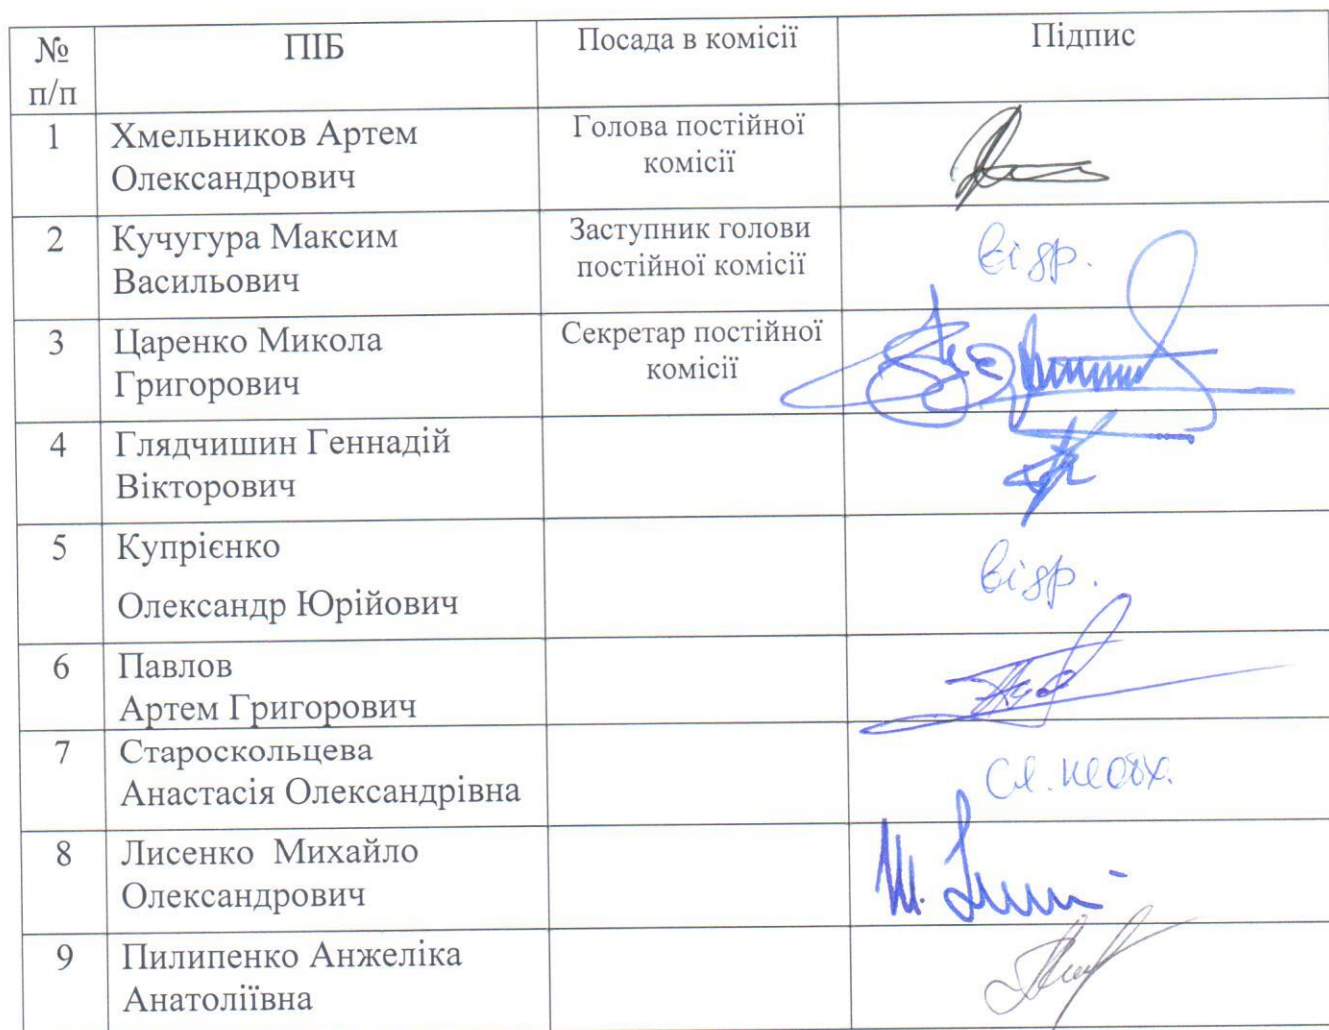 № п/п ПІБ Посада в комісії Підпис
1 Хмельников Артем Олександрович Голова постійної комісії
2 Кучугура Максим Васильович Заступник голови постійної комісії відр.
3 Царенко Микола Григорович Секретар постійної комісії
4 Глядчишин Геннадій Вікторович
5 Купрієнко Олександр Юрійович відр.
6 Павлов Артем Григорович
7 Староскольцева Анастасія Олександрівна сл. необх.
8 Лисенко Михайло Олександрович
9 Пилипенко Анжеліка Анатоліївна